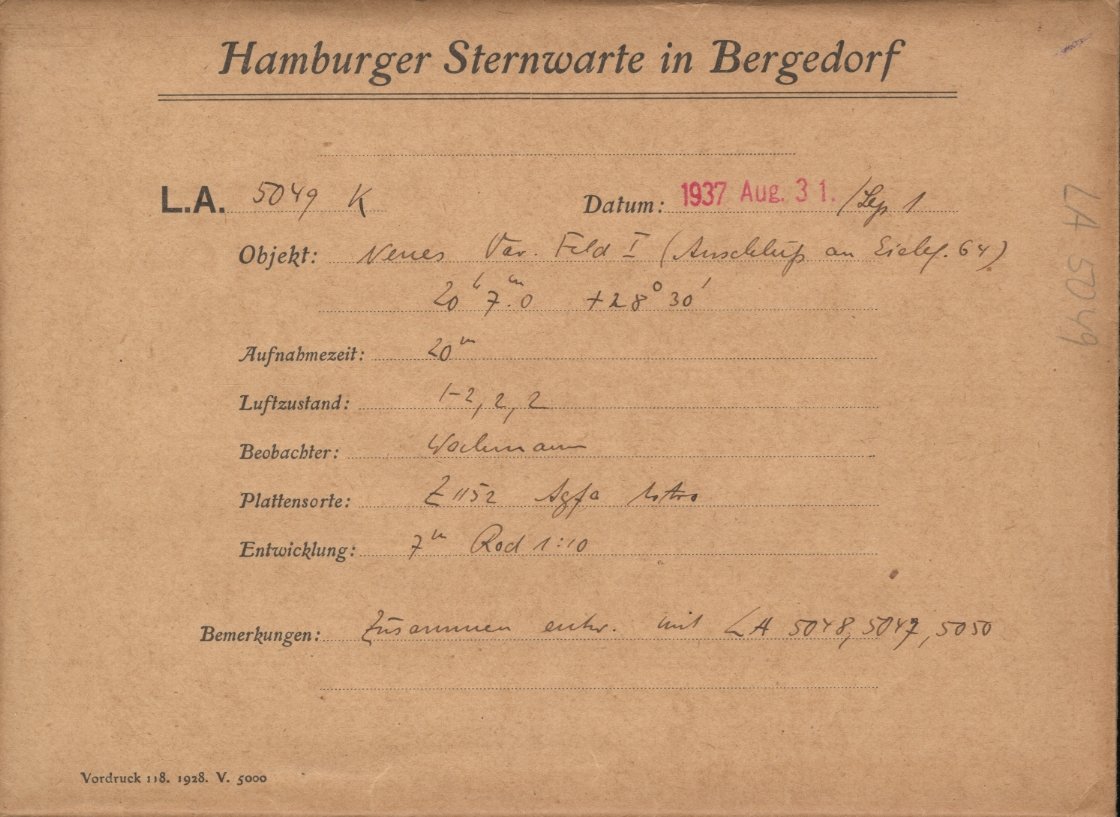 Hamburger Sternwarte in Bergedorf
L.A. 5049 K Datum: 1937 Aug. 31. / Sep 1
Objekt: Neues Var. Feld I (Anschluß an Eichf. 64)
20h 7m.0 +28° 30'
Aufnahmezeit: 20m
Luftzustand: 1-2, 2, 2
Beobachter: Wachmann
Plattensorte: Z 1152 Agfa Astro
Entwicklung: 7m Rod 1:10
Bemerkungen: Zusammen entw. mit LA 5048, 5047, 5050
Vordruck 118. 1928. V. 5000
LA 5049